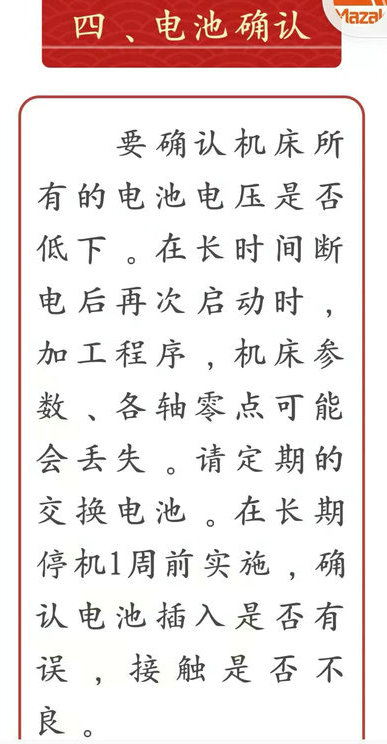 四、电池确认
Mazak
要确认机床所
有的电池电压是否
低下。在长时间断
电后再次启动时，
加工程序，机床参
数、各轴零点可能
会丢失。请定期的
交换电池。在长期
停机1周前实施，确
认电池插入是否有
误，接触是否不
良。